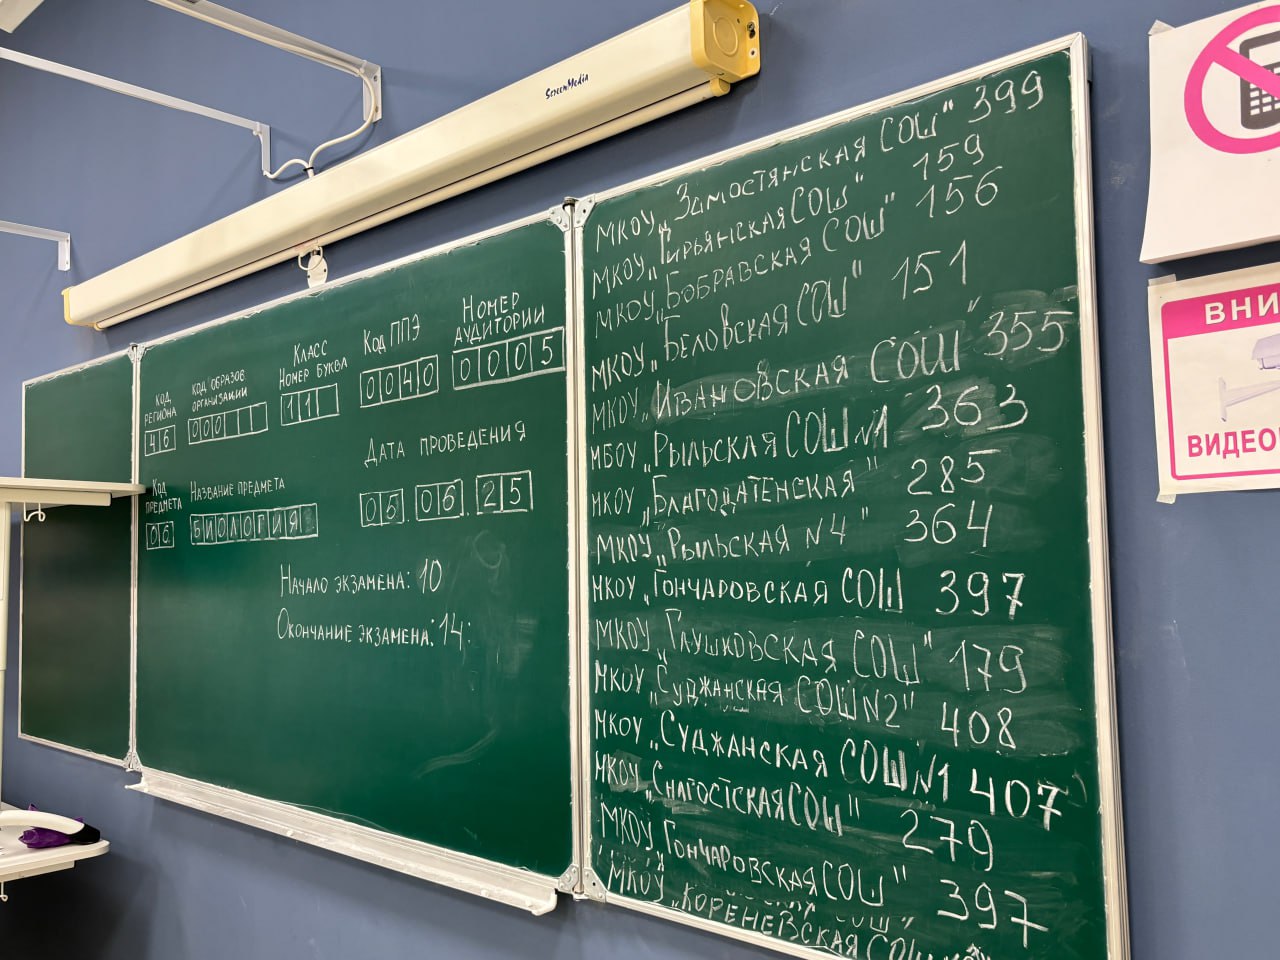 ScreenMedia
КОД РЕГИОНА
46
КОД ОБРАЗОВ ОРГАНИЗАЦИИ
000
КЛАСС
НОМЕР БУКВА
11
КОД ППЭ
0040
НОМЕР АУДИТОРИИ
0005
КОД ПРЕДМЕТА
06
НАЗВАНИЕ ПРЕДМЕТА
БИОЛОГИЯ
ДАТА ПРОВЕДЕНИЯ
05.06.25
НАЧАЛО ЭКЗАМЕНА: 10
ОКОНЧАНИЕ ЭКЗАМЕНА: 14:
МКОУ „ЗАМОСТЯНСКАЯ СОШ" 399
МКОУ „ГИРЬЯНСКАЯ СОШ" 159
МКОУ „БОБРАВСКАЯ СОШ" 156
МКОУ „БЕЛОВСКАЯ СОШ" 151
МКОУ „ИВАНОВСКАЯ СОШ" 355
МБОУ „РЫЛЬСКАЯ СОШ N1 363
МКОУ „БЛАГОДАТЕНСКАЯ" 285
МКОУ „РЫЛЬСКАЯ N4" 364
МКОУ „ГОНЧАРОВСКАЯ СОШ 397
МКОУ „ГЛУШКОВСКАЯ СОШ" 179
МКОУ „СУДЖАНСКАЯ СОШ N2" 408
МКОУ „СУДЖАНСКАЯ СОШ N1 407
МКОУ „СНАГОСТСКАЯ СОШ" 279
МКОУ „ГОНЧАРОВСКАЯ СОШ" 397
МКОУ „КОРЕНЕВСКАЯ СОШ
ВНИ
ВИДЕО